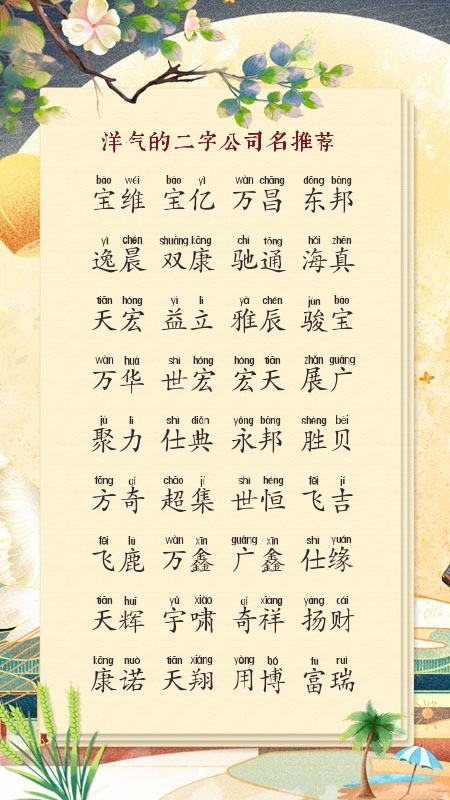 洋气的二字公司名推荐
bǎo wéi bǎo yì wàn chāng dōng bāng
宝维 宝亿 万昌 东邦
yì chén shuāng kāng chí tōng hǎi zhēn
逸晨 双康 驰通 海真
tiān hóng yì lì yǎ chén jùn bǎo
天宏 益立 雅辰 骏宝
wàn huá shì hóng hóng tiān zhǎn guǎng
万华 世宏 宏天 展广
jù lì shì diǎn yǒng bāng shèng bèi
聚力 仕典 永邦 胜贝
fāng qí chāo jí shì héng fēi jí
方奇 超集 世恒 飞吉
fēi lù wàn xīn guǎng xīn shì yuán
飞鹿 万鑫 广鑫 仕缘
tiān huī yǔ xiào qí xiáng yáng cái
天辉 宇啸 奇祥 扬财
kāng nuò tiān xiáng yòng bó fù ruì
康诺 天翔 用博 富瑞